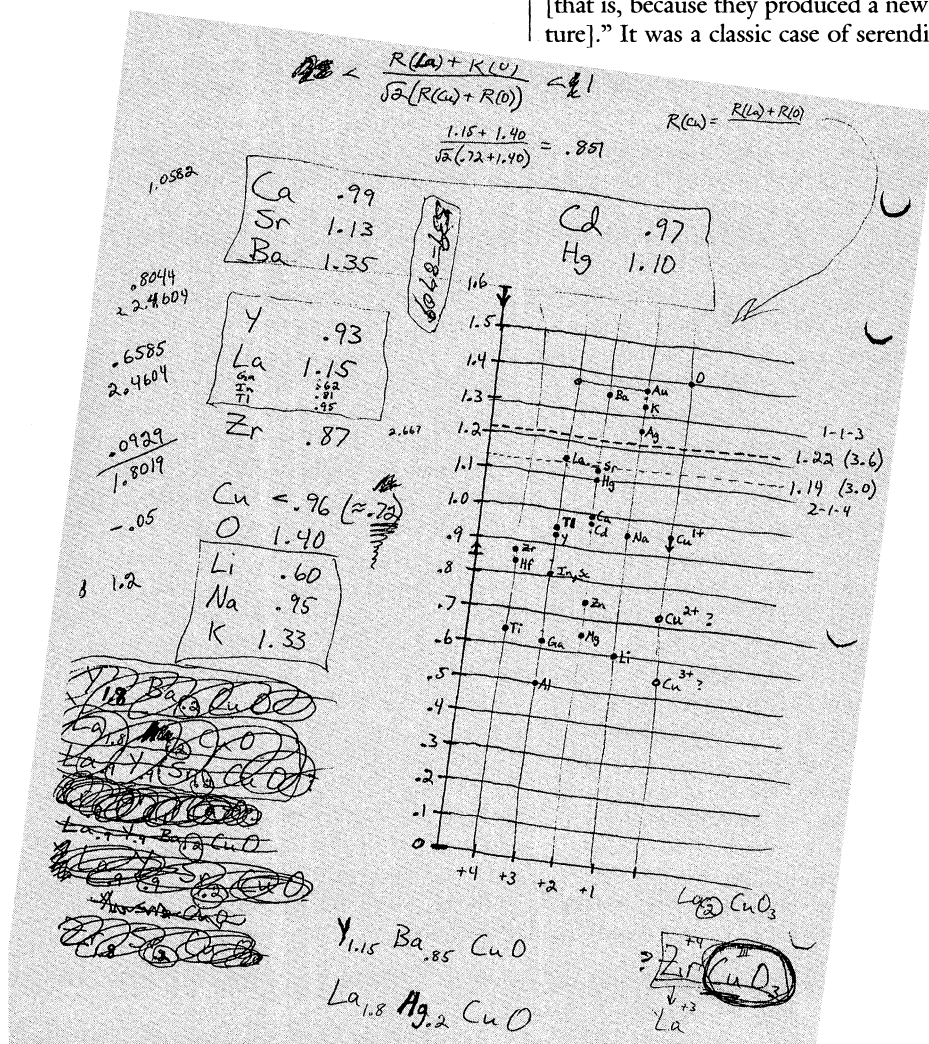 [that is, because they produced a new
ture].” It was a classic case of serendi
< R(La) + R(O) < 1
√2(R(Cu) + R(O))
R(Cu) = R(La) + R(O)
1.15 + 1.40 = .851
√2(.72 + 1.40)
1.0582
Ca .99
Sr 1.13
Ba 1.35
Cd .97
Hg 1.10
.8044
2.4604
Y .93
La 1.15
Ga .62
In .81
Tl .95
Zr .87
2.667
.6585
2.4604
.0929
1.8019
-.05
1.2
Cu < .96 (≈.72)
O 1.40
Li .60
Na .95
K 1.33
1.6
1.5
1.4
1.3
1.2
1.1
1.0
.9
.8
.7
.6
.5
.4
.3
.2
.1
0
+4 +3 +2 +1
O
Ba
Au
K
Ag
La
Sr
Hg
Tl
Y
Ca
Cd
Na
Cu1+
Zr
Hf
In, Sc
Zn
Cu2+ ?
Ti
Ga
Mg
Li
Al
Cu3+ ?
1-1-3
1.22 (3.6)
1.14 (3.0)
2-1-4
Y1.8 Ba.2 CuO
La1.8
La.9 Y.9 Ba.2 CuO
La.9 Y.9 Sr.2 CuO
Y1.15 Ba.85 CuO
La1.8 Hg.2 CuO
La2 CuO3
? Zr+4 CuO3 III
↓ +3
La